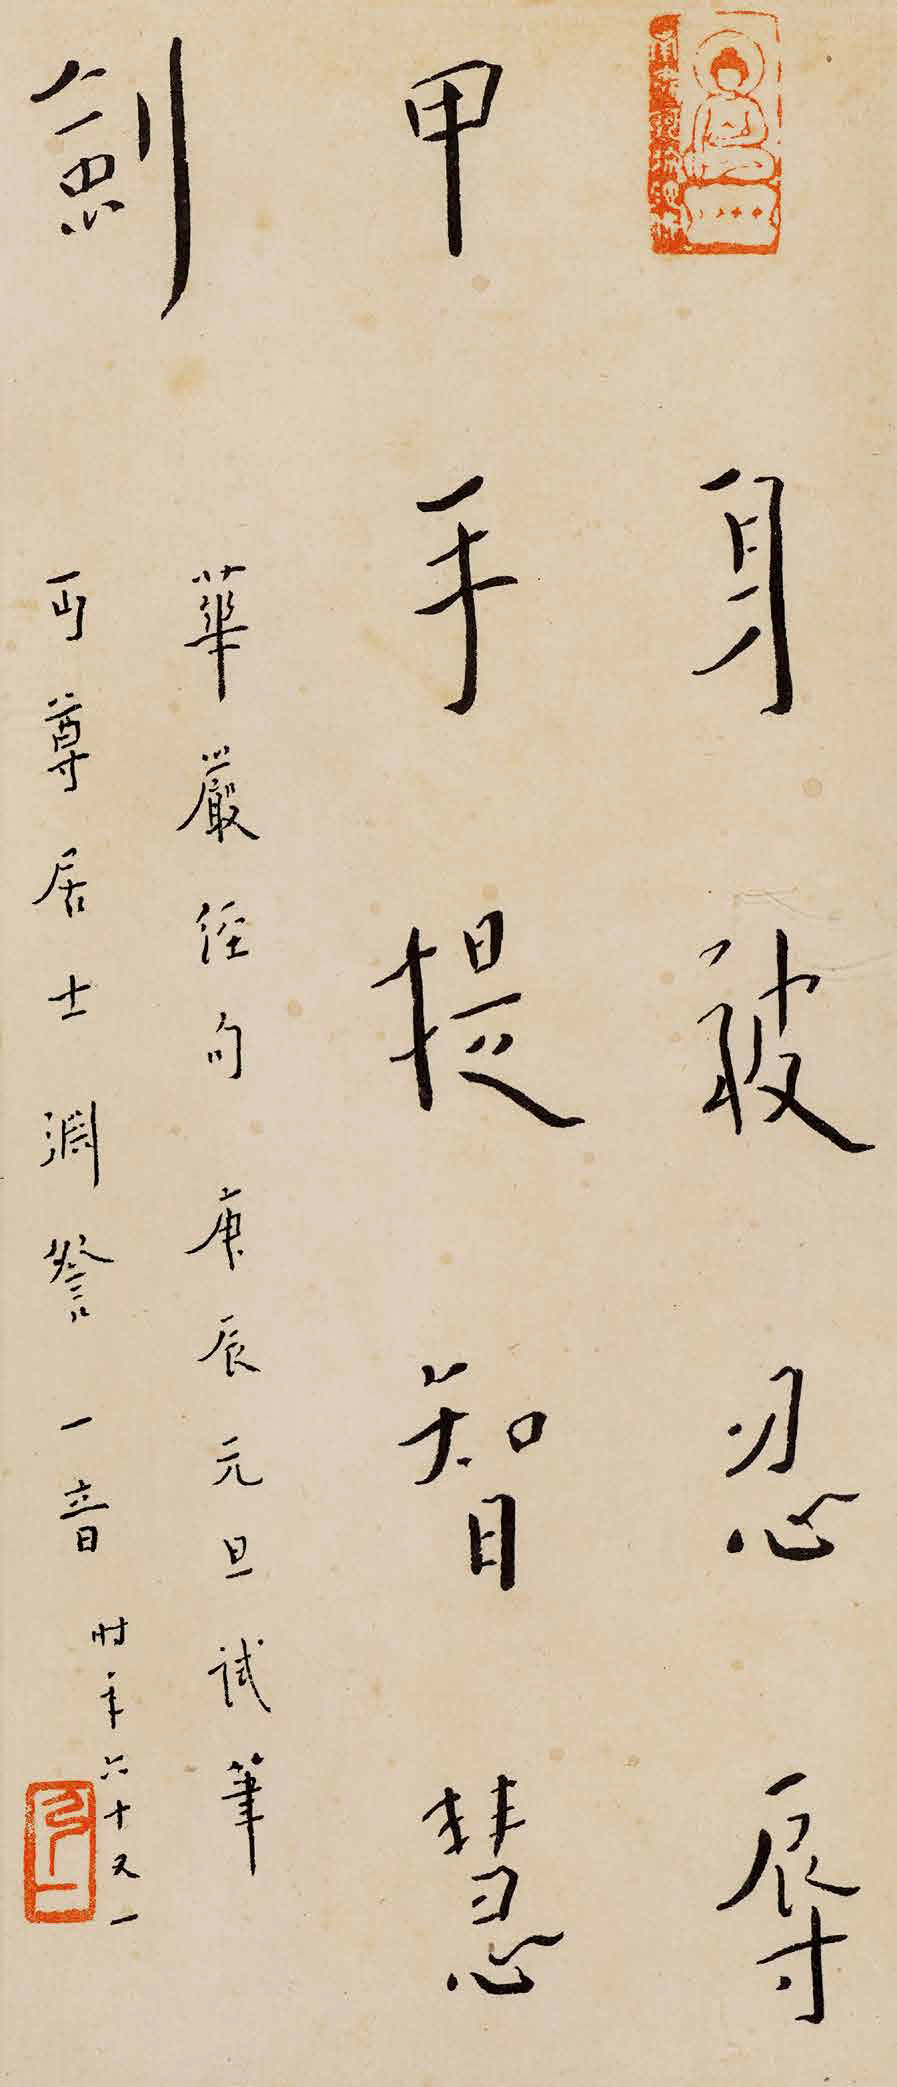 身被忍辱
甲手提智慧
劍
華嚴經句 庚辰元旦試筆
丏尊居士 淵詧 一音 时年六十又一
弘一